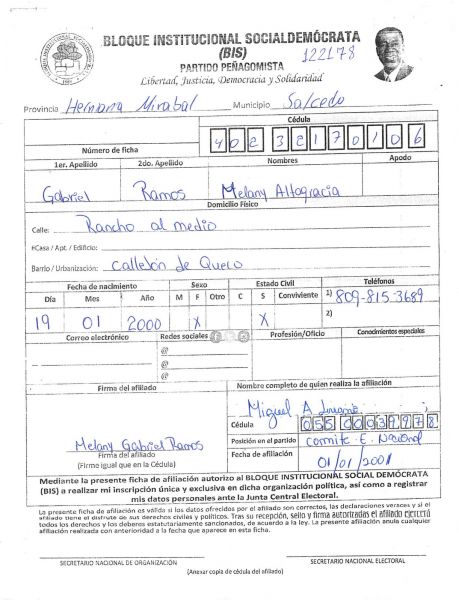 BLOQUE INSTITUCIONAL SOCIALDEMÓCRATA
(BIS)
122178
PARTIDO PEÑAGOMISTA
Libertad, Justicia, Democracia y Solidaridad
Provincia Hermana Mirabal Municipio Salcedo
Cédula
Número de ficha 402 3217010 6
1er. Apellido 2do. Apellido Nombres Apodo
Gabriel Ramos Melany Altagracia
Domicilio Físico
Calle: Rancho al medio
#Casa / Apt. / Edificio:
Barrio / Urbanización: Callejón de Queco
Fecha de nacimiento Sexo Estado Civil Teléfonos
Día Mes Año M F Otro C S Conviviente 1) 809-815-3689
19 01 2000 X X 2)
Correo electrónico Redes sociales Profesión/Oficio Conocimientos especiales
@
@
@
Firma del afiliado Nombre completo de quien realiza la afiliación
Miguel A
Cédula 055 0003997 8
Melany Gabriel Ramos Posición en el partido Comite E. Nacional
Firma del afiliado Fecha de afiliación 01/01/2001
(Firme igual que en la Cédula)
Mediante la presente ficha de afiliación autorizo al BLOQUE INSTITUCIONAL SOCIAL DEMÓCRATA
(BIS) a realizar mi inscripción única y exclusiva en dicha organización política, así como a registrar
mis datos personales ante la Junta Central Electoral.
La presente ficha de afiliación es válida si los datos ofrecidos por el afiliado son correctos, las declaraciones veraces y si el
afiliado tiene el disfrute de sus derechos civiles y políticos. Tras su recepción, sello y firma autorizadas el afiliado ejercerá
todos los derechos y los deberes estatutariamente sancionados, de acuerdo a la ley. La presente afiliación anula cualquier
afiliación realizada con anterioridad a la fecha que aparece en esta ficha.
SECRETARIO NACIONAL DE ORGANIZACIÓN SECRETARIO NACIONAL ELECTORAL
(Anexar copia de cédula del afiliado)